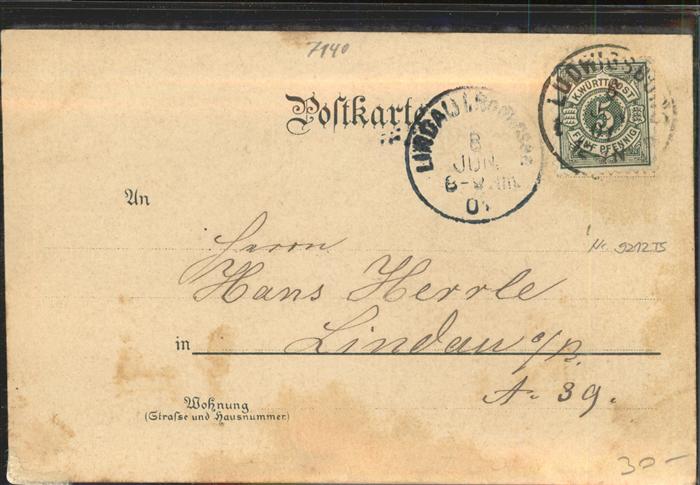 7140
Postkarte
LUDWIGSBURG
K.WÜRTT.POST
5
FÜNF PFENNIG
LINDAU i. Bodensee
8
JUN.
8-9 Vm.
01
An
Herrn
Nr. 9212 TS
Hans Herrle
in Lindau a/B.
A. 39.
Wohnung
(Strasse und Hausnummer)
30-